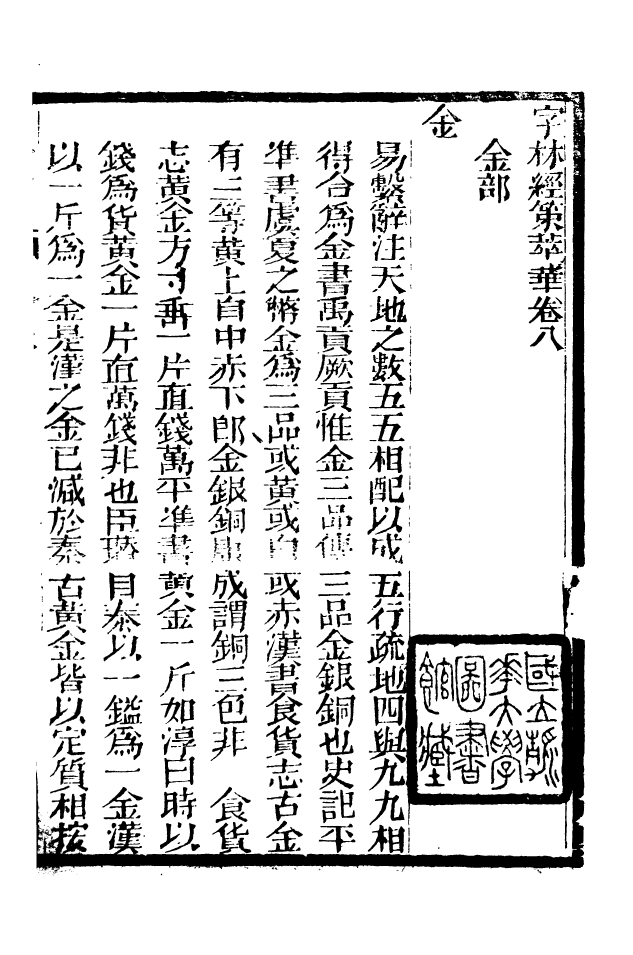 字林經策萃華卷八
金部
金
易繫辭注天地之數五五相配以成五行疏地四與九九相
得合爲金書禹貢厥貢惟金三品傳三品金銀銅也史記平
準書虞夏之幣金爲三品或黃或白或赤漢書食貨志古金
有三等黃上白中赤下郎金銀銅服成謂銅三色非 食貨
志黃金方寸重一片直錢萬平準書黃金一斤如淳曰時以
錢爲貨黃金一片直萬錢非也臣瓚曰秦以一鎰爲一金漢
以一斤爲一金是漢之金已減於秦古黃金皆以定質相核
國立
大學
圖書
館藏